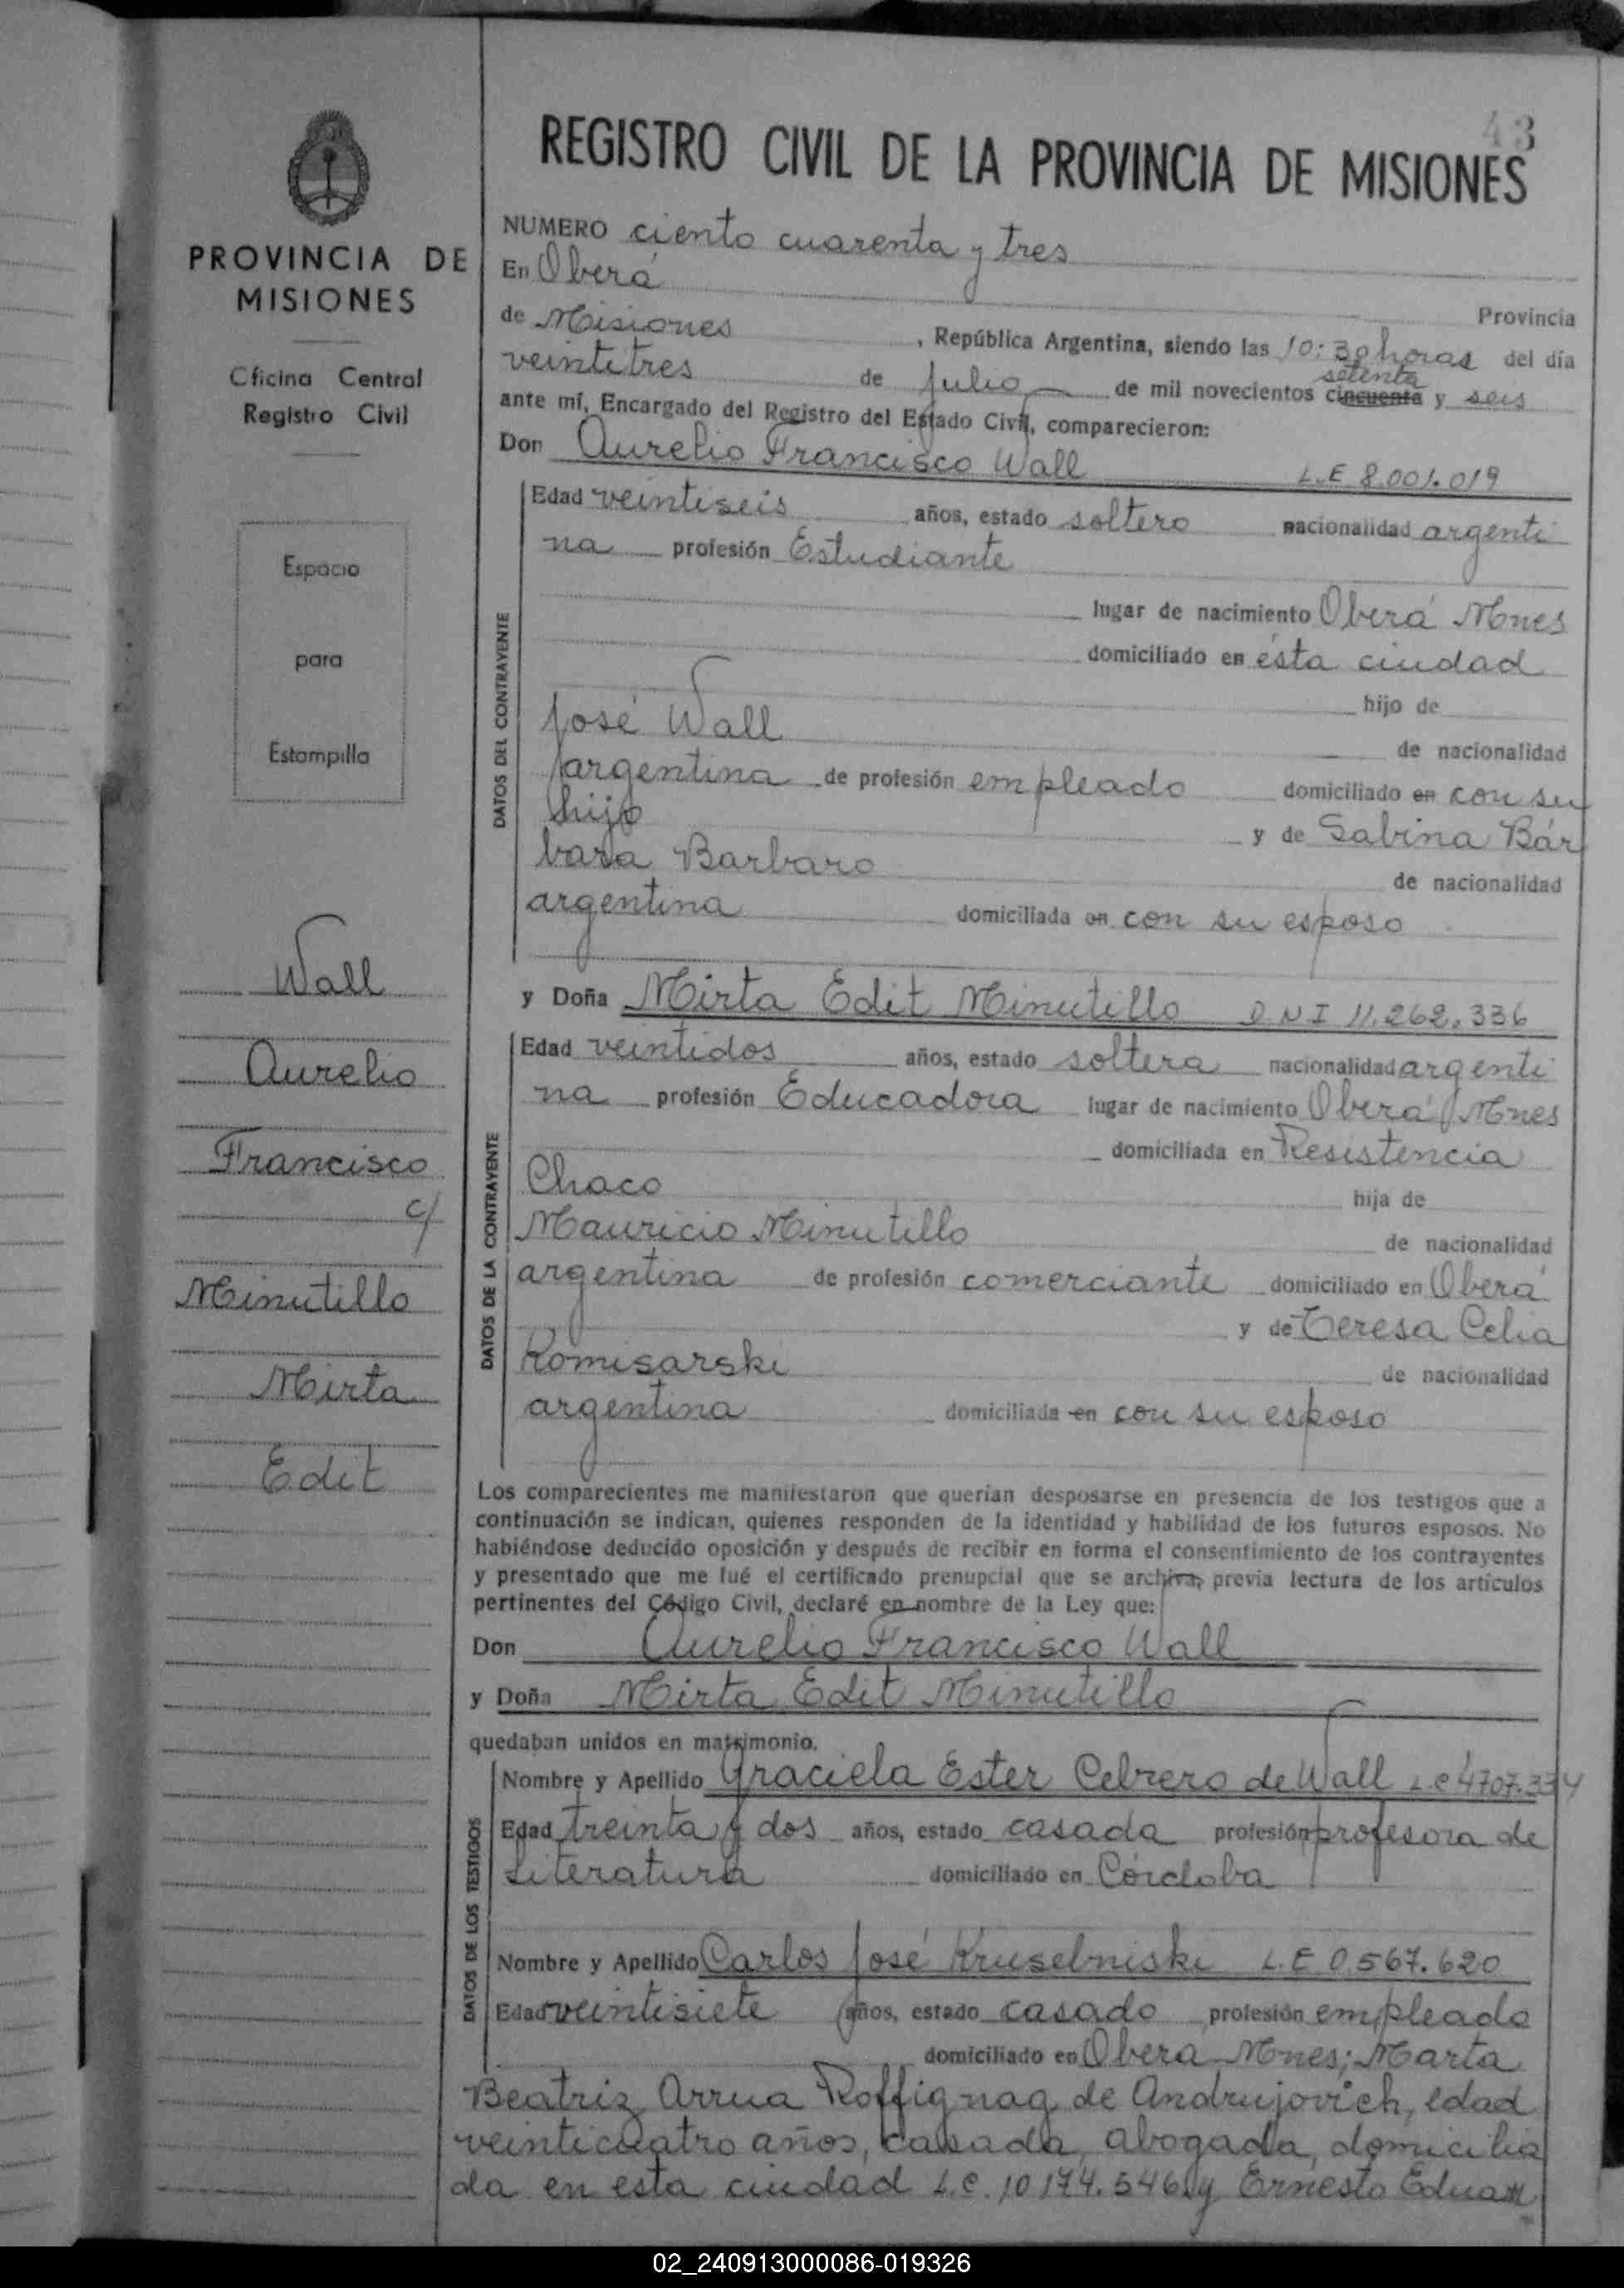 43
REGISTRO CIVIL DE LA PROVINCIA DE MISIONES
PROVINCIA DE
MISIONES
Oficina Central
Registro Civil
Espacio
para
Estampilla
Wall
Aurelio
Francisco
c/
Minutillo
Mirta
Edit
NUMERO ciento cuarenta y tres
En Oberá
Provincia
de Misiones, República Argentina, siendo las 10:30 horas del día
veintitres de Julio de mil novecientos cincuenta setenta y seis
ante mí, Encargado del Registro del Estado Civil, comparecieron:
Don Aurelio Francisco Wall L.E 8.001.019
DATOS DEL CONTRAYENTE
Edad veintiseis años, estado soltero nacionalidad argenti
na profesión Estudiante
lugar de nacimiento Oberá Mnes
domiciliado en ésta ciudad
hijo de
José Wall de nacionalidad
argentina de profesión empleado domiciliado en con su
hijo y de Sabina Bár
bara Barbaro de nacionalidad
argentina domiciliada en con su esposo
y Doña Mirta Edit Minutillo D.N.I 11.262.336
DATOS DE LA CONTRAYENTE
Edad veintidos años, estado soltera nacionalidad argenti
na profesión Educadora lugar de nacimiento Oberá Mnes
domiciliada en Resistencia
Chaco hija de
Mauricio Minutillo de nacionalidad
argentina de profesión comerciante domiciliado en Oberá
y de Teresa Celia
Komisarski de nacionalidad
argentina domiciliada en con su esposo
Los comparecientes me manifestaron que querían desposarse en presencia de los testigos que a
continuación se indican, quienes responden de la identidad y habilidad de los futuros esposos. No
habiéndose deducido oposición y después de recibir en forma el consentimiento de los contrayentes
y presentado que me fué el certificado prenupcial que se archiva, previa lectura de los artículos
pertinentes del Código Civil, declaré en nombre de la Ley que:
Don Aurelio Francisco Wall
y Doña Mirta Edit Minutillo
quedaban unidos en matrimonio.
DATOS DE LOS TESTIGOS
Nombre y Apellido Graciela Ester Cebrero de Wall L.C 4707.334
Edad treinta y dos años, estado casada profesión profesora de
Literatura domiciliado en Córdoba
Nombre y Apellido Carlos José Kruselniski L.E 0.567.620
Edad veintisiete años, estado casado profesión empleado
domiciliado en Oberá Mnes; Marta
Beatriz Arrua Roffignag de Andrujovich, edad
veinticuatro años, casada, abogada, domicilia
da en esta ciudad L.C. 10.174.546 y Ernesto Eduar
02_240913000086-019326